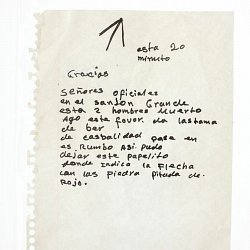 esta 20
minuto
Gracias
SEÑORES oficiales
en el sanjon Grande
esta 2 hombres Muerto
Ago este favor. da lastama
de ber
de casbalidad pase en
es Rumbo Asi pudo
dejar este papelito
donde indico la Flecha
can las Piedra Pitada de.
Rojo.